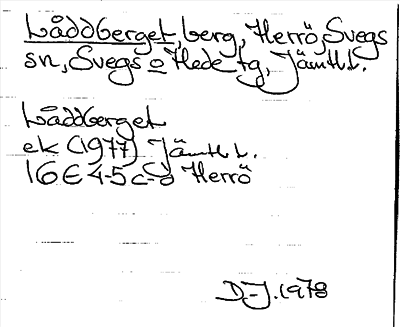 Låddberget, berg, Herrö, Svegs
sn, Svegs o Hede tg, Jämtl.
Låddberget
ek (1977) Jämtl.
16E 4-5 c-d Herrö
D.-J. 1978